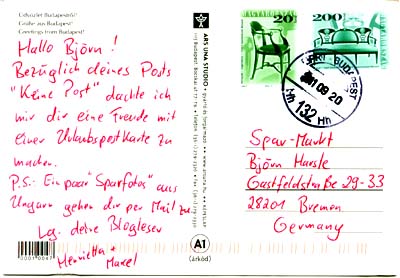 Üdvözlet Budapestről!
Grüße aus Budapest!
Greetings from Budapest!
Hallo Björn!
Bezüglich deines Posts
"Keine Post" dachte ich
mir dir eine Freude mit
einer Urlaubspostkarte zu
machen.
P.S.: Ein paar "Sparfotos" aus
Ungarn gehen dir per Mail zu.
Lg. deine Blogleser
Henrietta +
Marcel
ARS UNA STUDIO
A1
(árkód)
20
200
MAGYARORSZÁG
BUDAPEST
09 20
132
Spar-Markt
Björn Harste
Gastfeldstraße 29-33
28201 Bremen
Germany